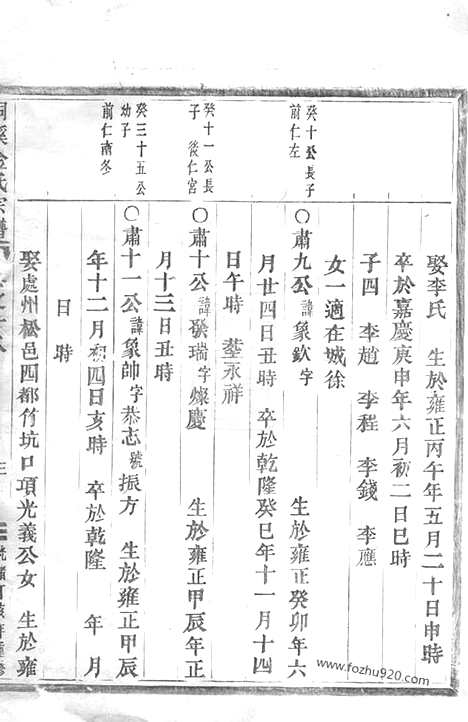 娶李氏 生於雍正丙午年五月二十日申時
卒於嘉慶庚申年六月初二日巳時
子四 李趙 李程 李錢 李應
女一適在城徐
癸十公長子
前仁左
〇肅九公諱象欽字 生於雍正癸卯年六
月廿四日丑時 卒於乾隆癸巳年十一月十四
日午時 塟永祥
癸十一公長
子 後仁宮
〇肅十公諱發瑞字燦慶 生於雍正甲辰年正
月十三日丑時
癸三十五公
幼子
前仁南冬
〇肅十一公諱象帥字恭志號振方 生於雍正甲辰
年十二月初四日亥時 卒於乾隆 年 月
日 時
娶處州松邑四都竹坑口項光義公女 生於雍
桐溪金氏宗譜
www.fozhu920.com